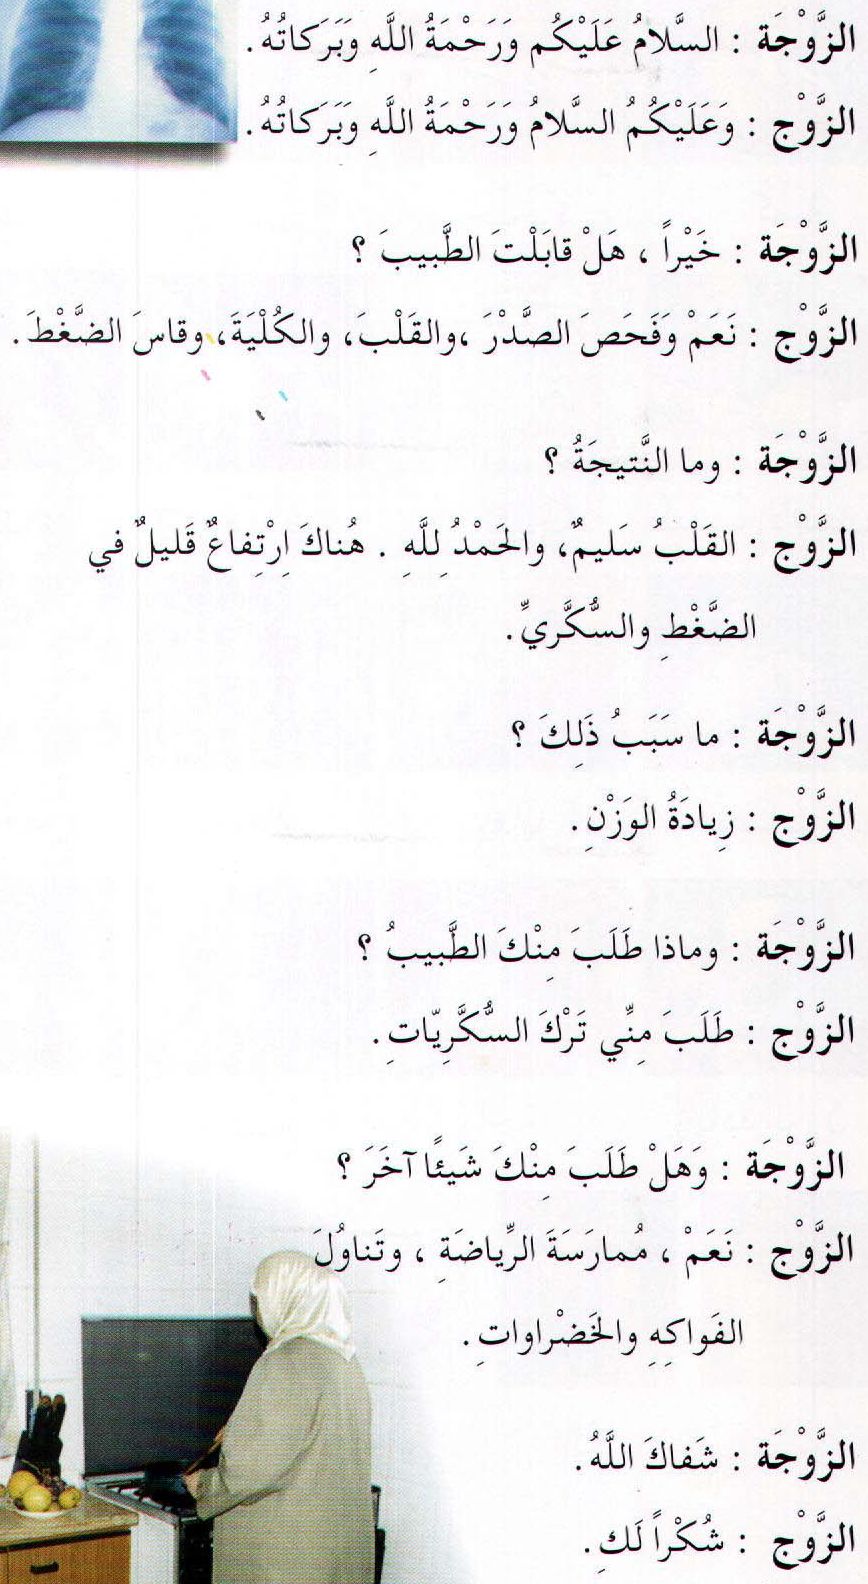 الزَّوْجَة : السَّلامُ عَلَيْكُم وَرَحْمَةُ اللَّهِ وَبَرَكاتُهُ.
الزَّوْج : وَعَلَيْكُمُ السَّلامُ وَرَحْمَةُ اللَّهِ وَبَرَكاتُهُ.
الزَّوْجَة : خَيْراً ، هَلْ قابَلْتَ الطَّبيبَ ؟
الزَّوْج : نَعَمْ وَفَحَصَ الصَّدْرَ ،والقَلْبَ، والكُلْيَةَ، وقاسَ الضَّغْطَ.
الزَّوْجَة : وما النَّتيجَةُ ؟
الزَّوْج : القَلْبُ سَليمٌ، والحَمْدُ لِلَّهِ . هُناكَ اِرْتِفاعٌ قَليلٌ في
الضَّغْطِ والسُّكَّريِّ.
الزَّوْجَة : ما سَبَبُ ذَلِكَ ؟
الزَّوْج : زِيادَةُ الوَزْنِ.
الزَّوْجَة : وماذا طَلَبَ مِنْكَ الطَّبيبُ ؟
الزَّوْج : طَلَبَ مِنِّي تَرْكَ السُّكَّرِيّاتِ.
الزَّوْجَة : وَهَلْ طَلَبَ مِنْكَ شَيئًا آخَرَ ؟
الزَّوْج : نَعَمْ ، مُمارَسَةَ الرِّياضَةِ ، وتَناوُلَ
الفَواكِهِ والخَضْراواتِ.
الزَّوْجَة : شَفاكَ اللَّهُ.
الزَّوْج : شُكْراً لَكِ.